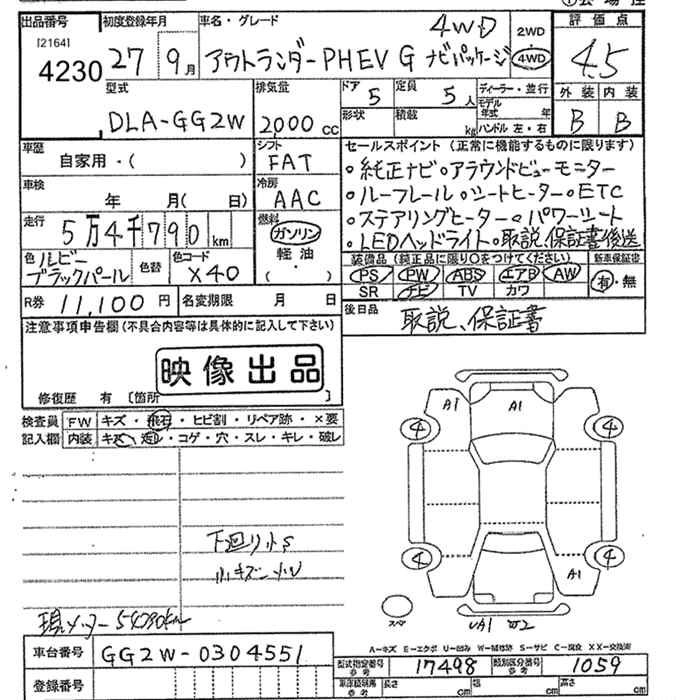 出品番号 初度登録年月 車名・グレード 評価点
[2164] 4230 27 9月 アウトランダーPHEV G ナビパッケージ 4WD 2WD 4WD 4.5
外装 内装
B B
型式 排気量 ドア 5 定員 5人 ディーラー・並行
モデル年式 年
DLA-GG2W 2000cc 形状 積載 kg ハンドル 左・右
車歴 シフト セールスポイント (正常に機能するものに限ります)
自家用・( ) FAT ・純正ナビ・アラウンドビューモニター
車検 年 月(日) 冷房 AAC ・ルーフレール・シートヒーター・ETC
走行 5万4千790km 燃料 ガソリン ・ステアリングヒーター・パワーシート
軽油 ・LEDヘッドライト・取説、保証書後送
色 ルビーブラックパール 色替 色コード X40 ・( )
装備品 (純正品に限り○をつけてください) 新車保証書
PS PW ABS エアB AW 有・無
SR ナビ TV カワ
R券 11,100円 名変期限 月 日
後日品 取説、保証書
注意事項申告欄(不具合内容等は具体的に記入して下さい)
映像出品
修復歴 有 〔箇所 〕
検査員 FW キズ・飛石・ヒビ割・リペア跡・×要
記入欄 内装 キズ・汚レ・コゲ・穴・スレ・キレ・破レ
A1 A1
4 4
4 4
A1
下廻りサビ
小キズ
現メーター 54790km
スペア
A-キズ E-エクボ U-凹み W-補修跡 S-サビ C-腐食 XX-交換済
車台番号 GG2W-0304551
型式指定番号 参考 17498 類別区分番号 参考 1059
登録番号
車庫証明用 参考 長さ cm 幅 cm 高さ cm